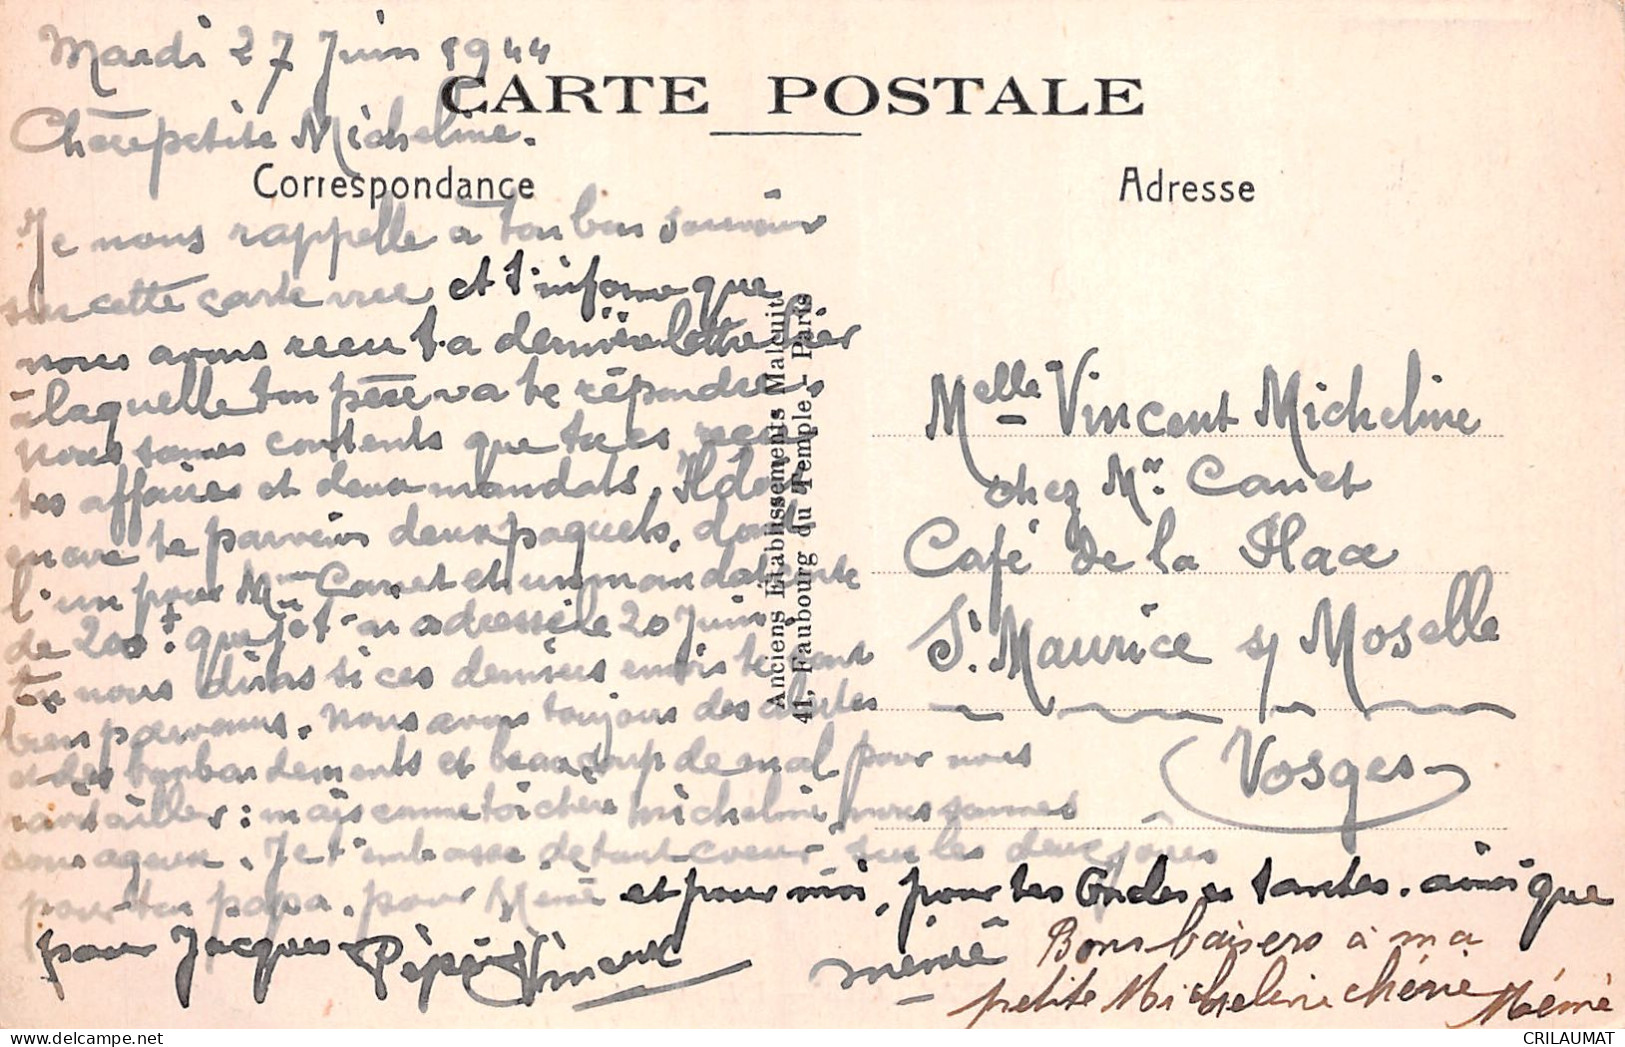 Mardi 27 Juin 1944
CARTE POSTALE
Chère petite Micheline.
Correspondance
Adresse
Je nous rappelle à ton bon souvenir
sur cette carte vue et t'informe que
nous avons reçu ta dernière lettre hier
à laquelle ton père va te répondre.
Nous sommes contents que tu es reçu
tes affaires et deux mandats. Il doit
encore te parvenir deux paquets, dont
l'un pour Mme Canet et un mandat carte
de 200f. que je t'ai adressé le 20 Juin
Tu nous diras si ces derniers envois te sont
bien parvenus. Nous avons toujours des alertes
et des bombardements et beaucoup de mal pour nous
ravitailler : mais comme toi chère Micheline, nous sommes
courageux. Je t'embrasse de tout coeur sur les deux joues
pour ton papa, pour Mémé et pour moi, pour tes Oncles et tantes. ainsi que
pour Jacques Pépé Vincent
Anciens Établissements Malcuit
41, Faubourg du Temple - Paris
Melle Vincent Micheline
chez Mr. Canet
Café de la Place
St. Maurice s/ Moselle
Vosges
Bons baisers à ma
petite Micheline chérie Mémé
CRILAUMAT